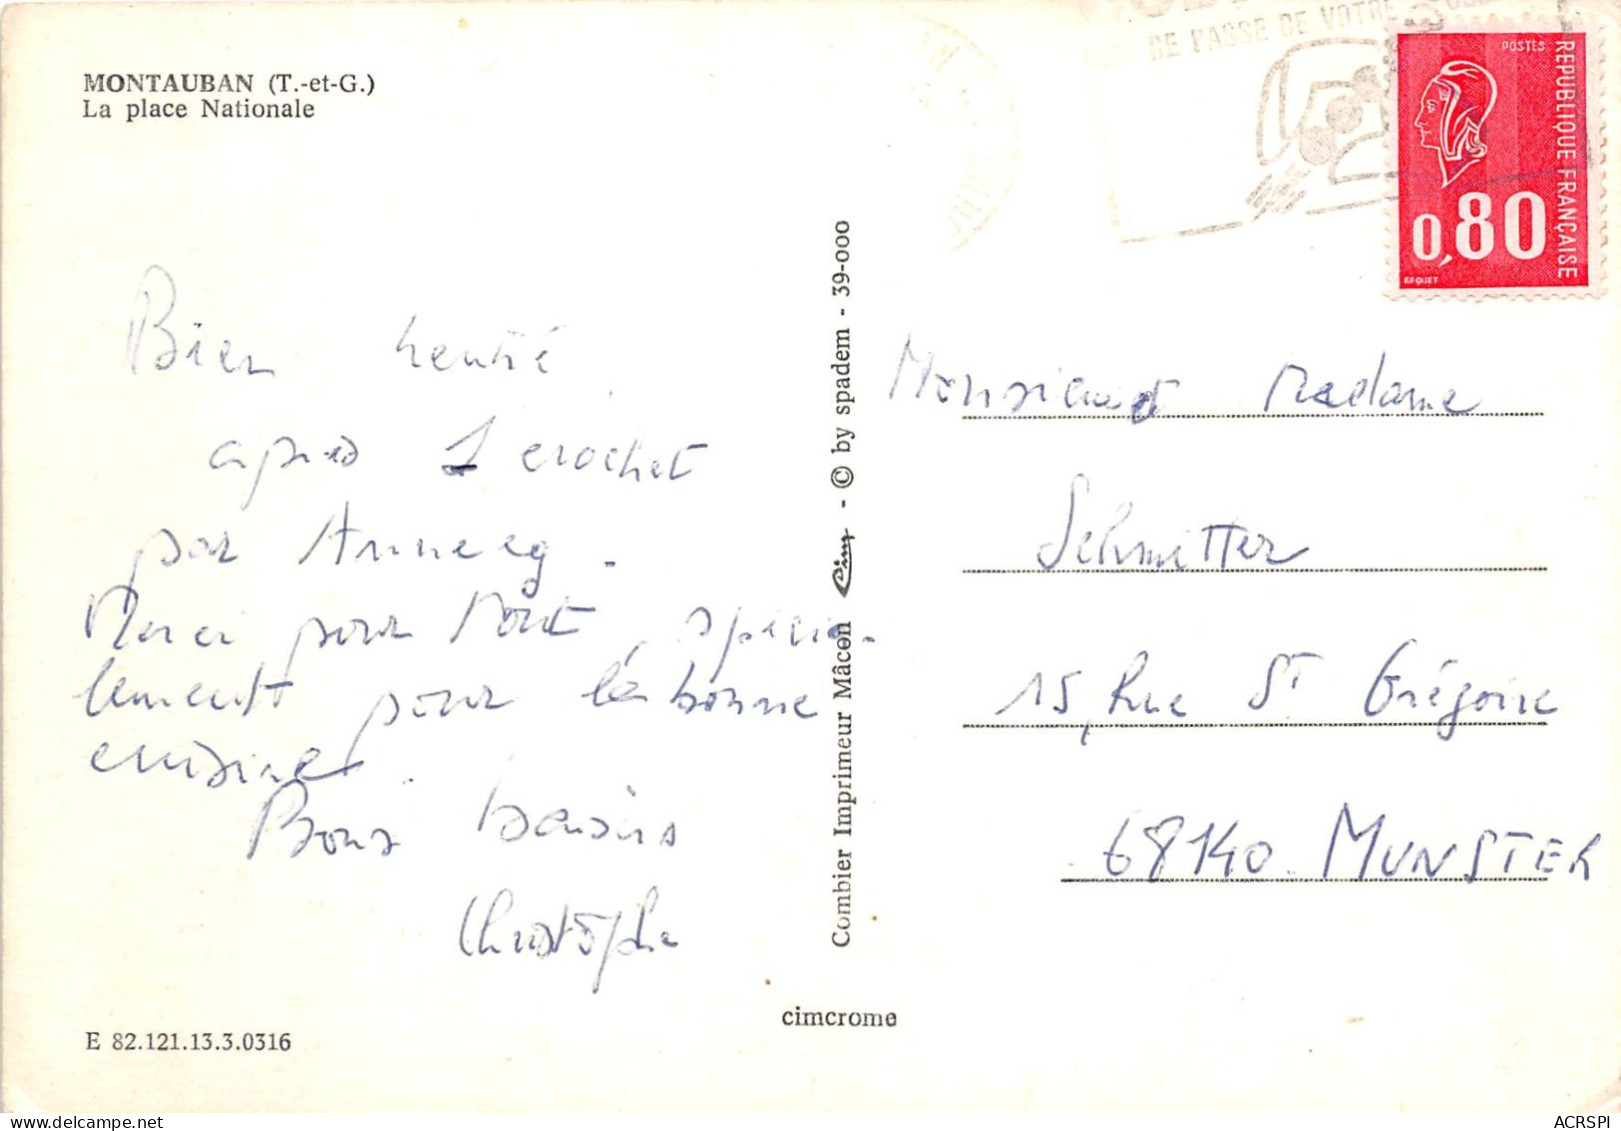 MONTAUBAN (T.-et-G.)
La place Nationale
DE PASSE DE VOTRE
POSTES
REPUBLIQUE FRANÇAISE
0,80
BEQUET
Bien rentré
après 1 crochet
par Annecy.
Merci pour tout, spécia-
lement pour la bonne
cuisine.
Bons baisers
Christophe
Combier Imprimeur Mâcon Cim - © by spadem - 39-000
Monsieur et Madame
Schmitter
15, Rue St Grégoire
68140 MUNSTER
cimcrome
E 82.121.13.3.0316
ACRSPI